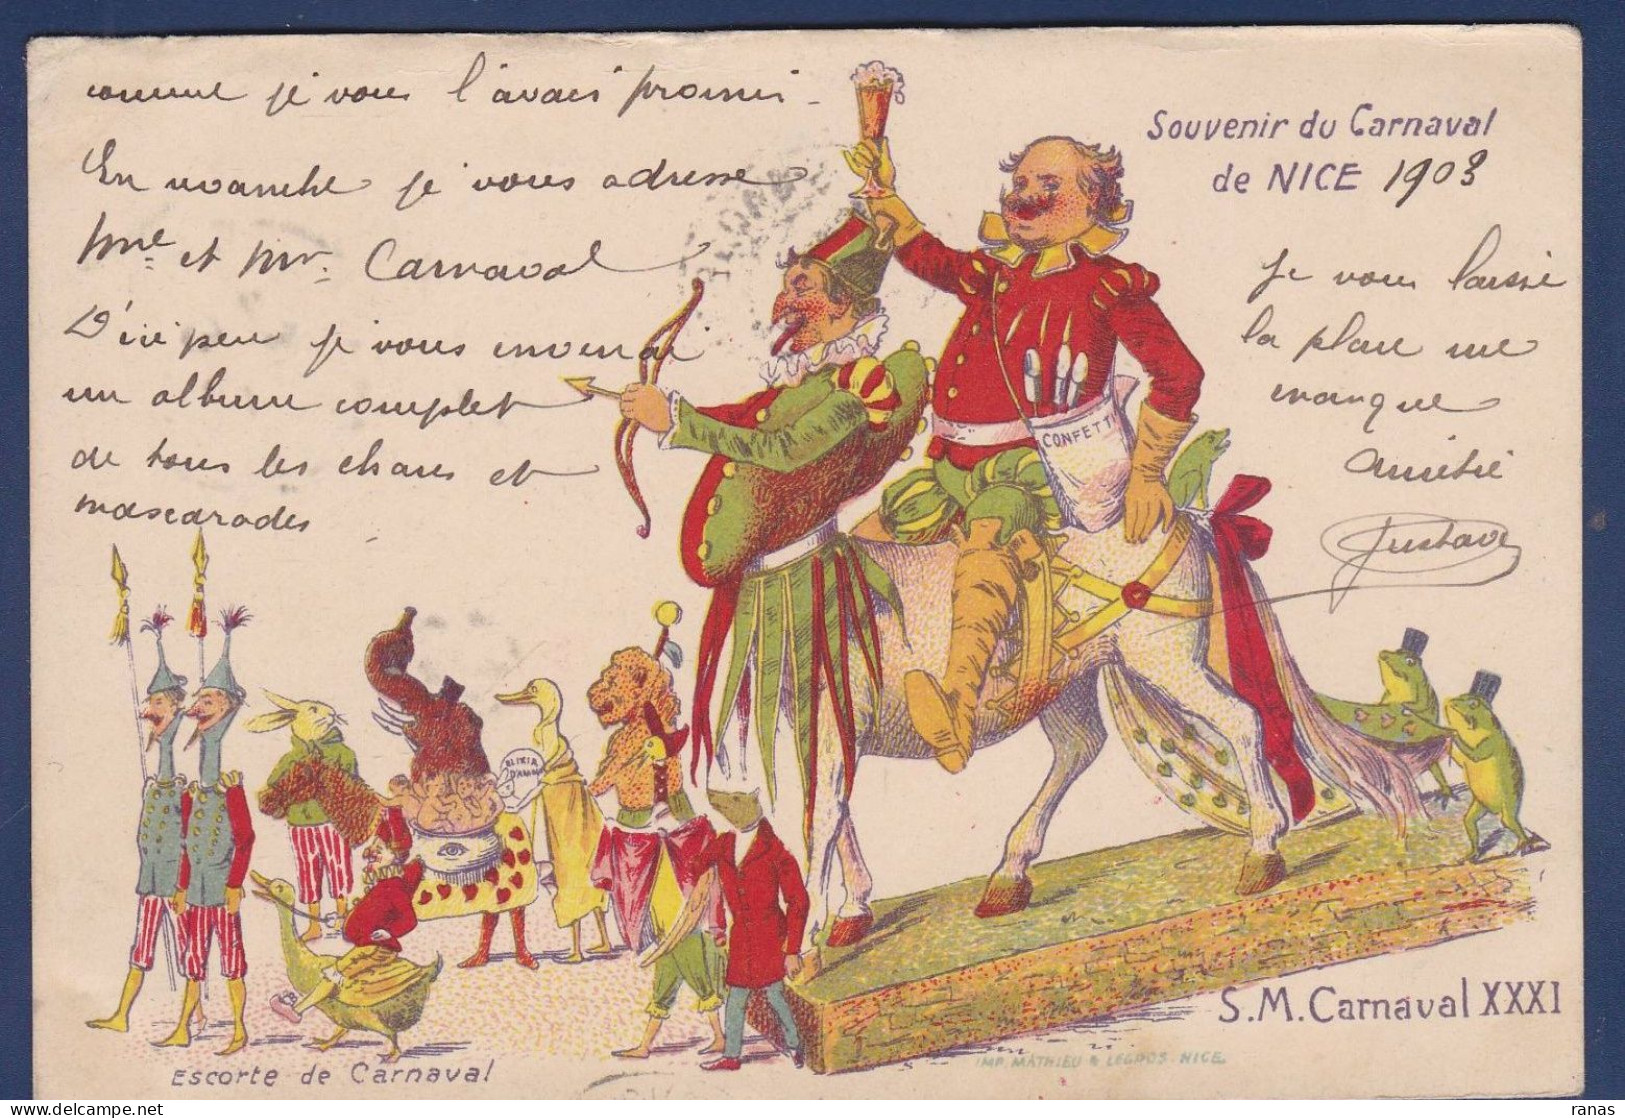 comme je vous l'avais promis -
En revanche je vous adresse
Mme et Mr. Carnaval
D'ici peu je vous enverrai
un album complet
de tous les chars et
mascarades
Souvenir du Carnaval
de NICE 1903
je vous laisse
la place me
manque
Amitié
Gustave
CONFETTI
ELIXIR
D'AMOUR
S.M. Carnaval XXXI
IMP. MATHIEU & LEGROS NICE
Escorte de Carnaval
ranas